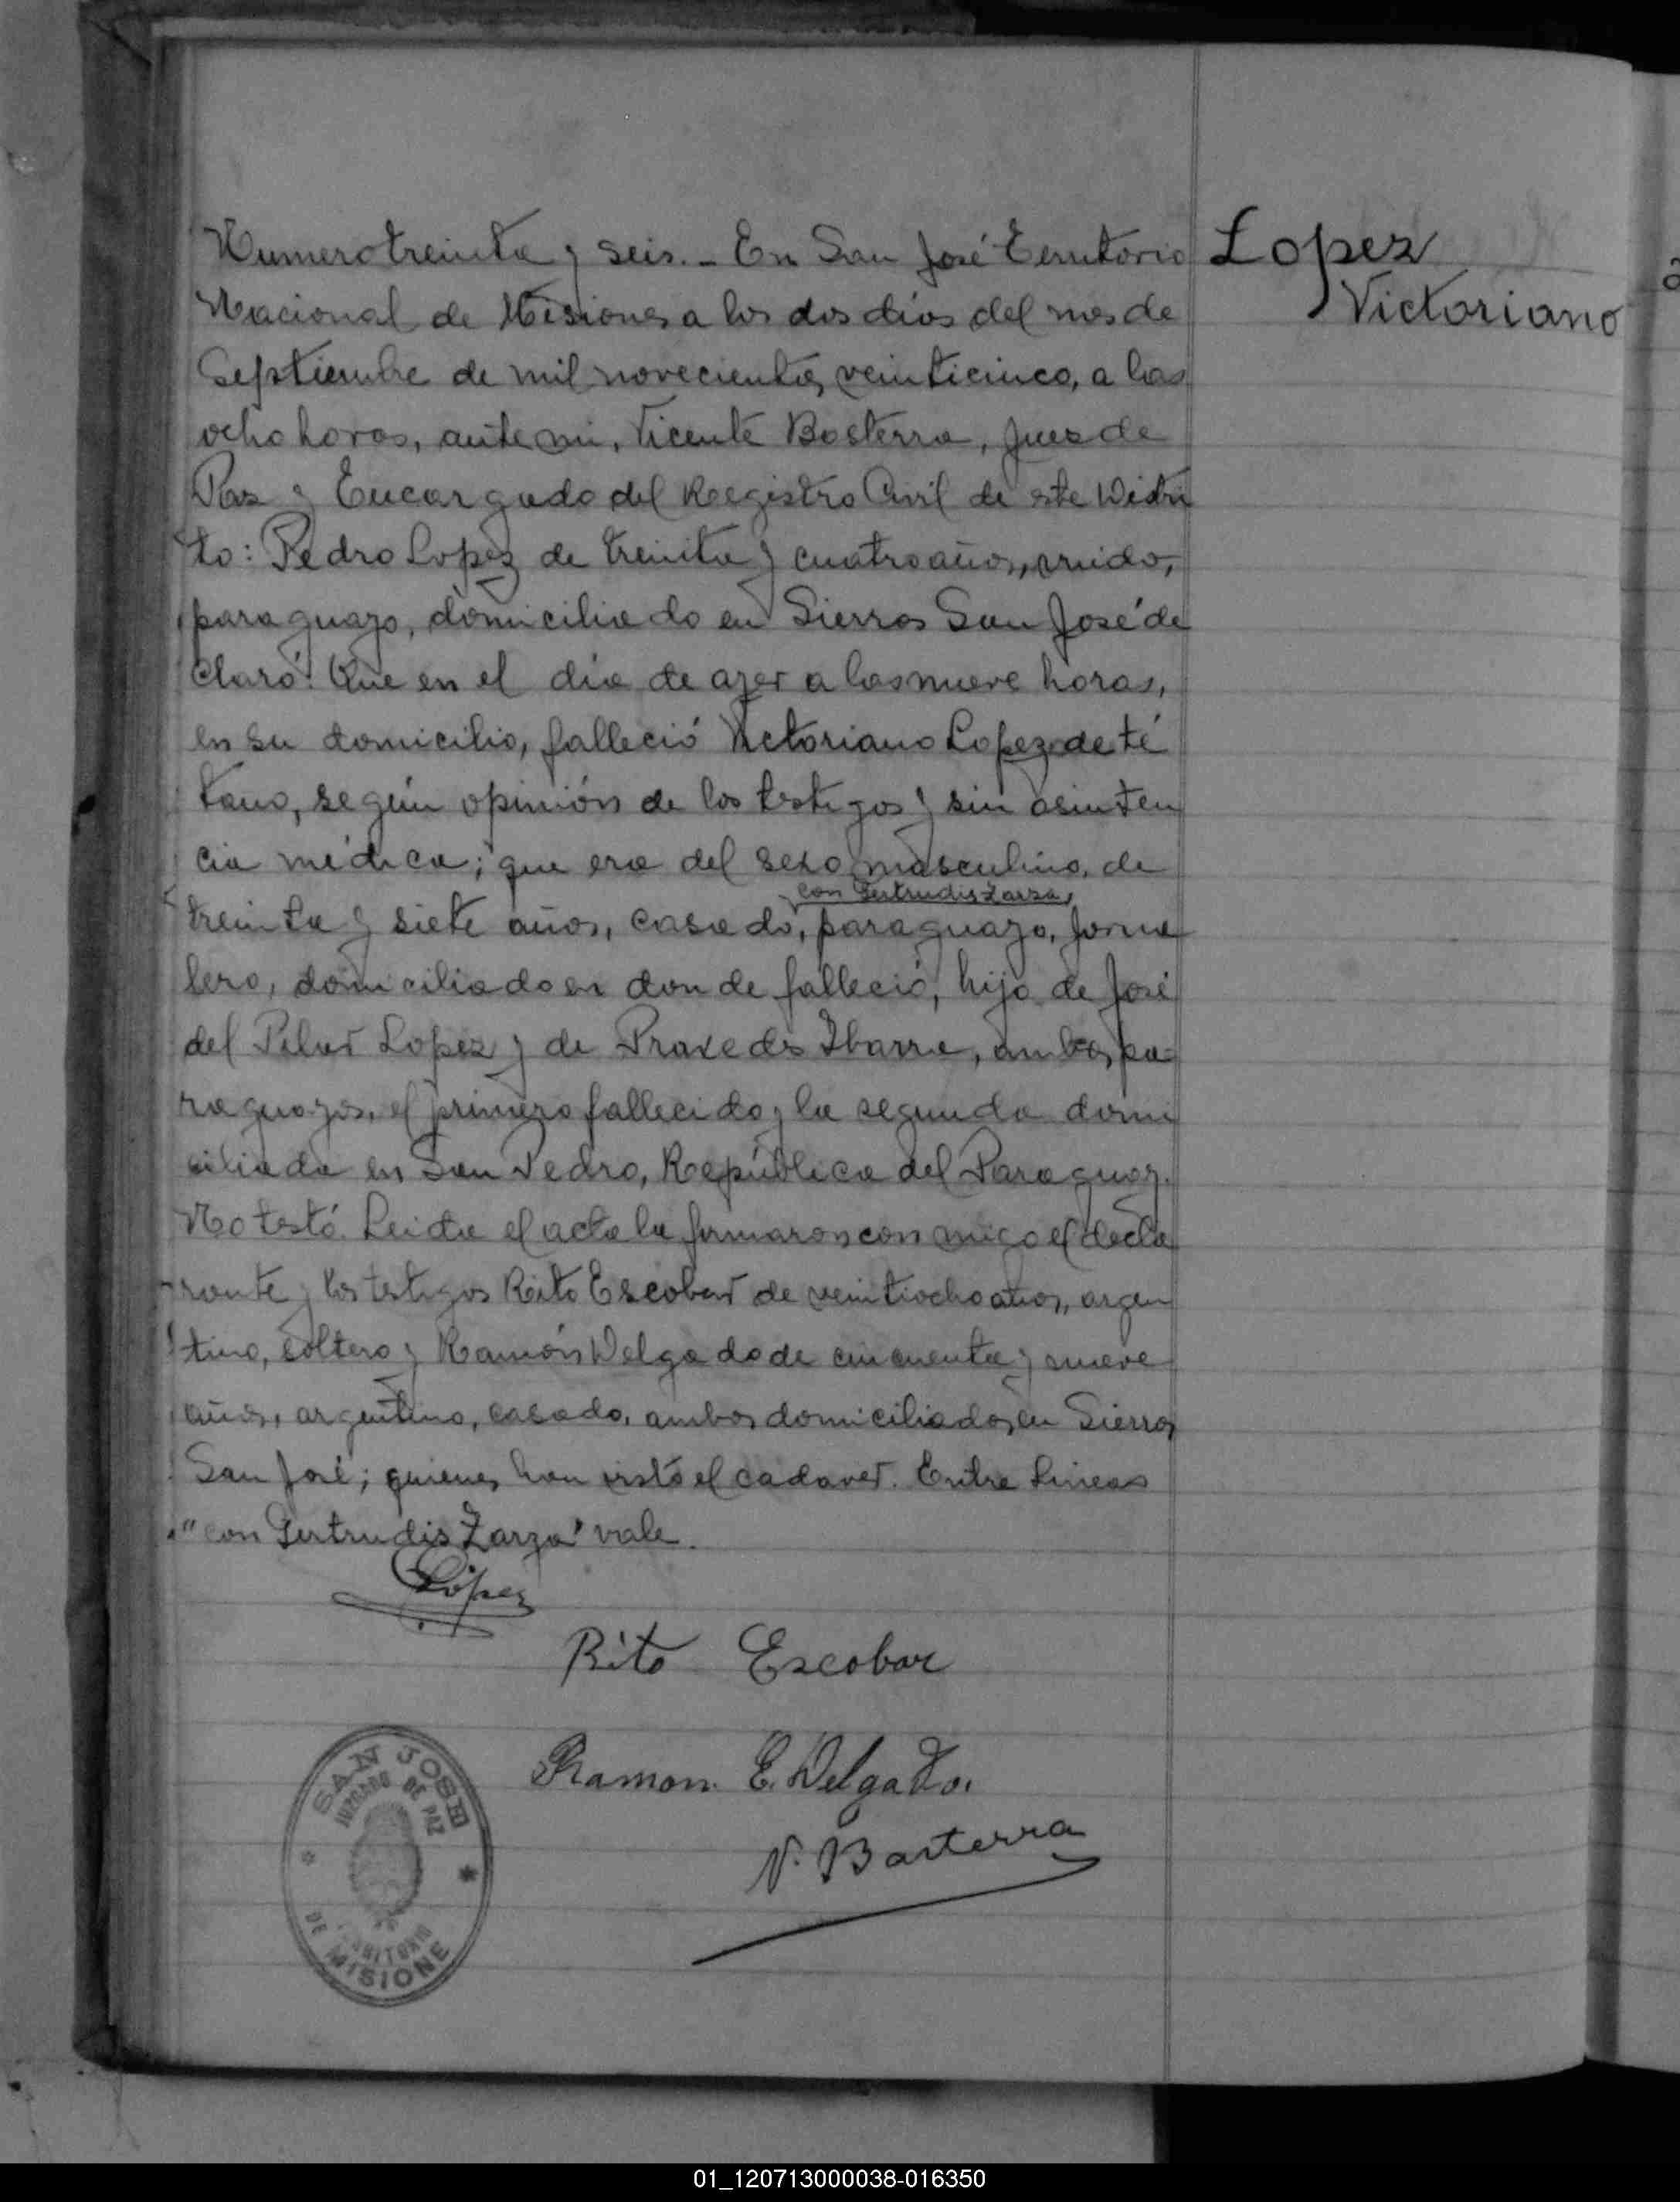 Numero treinta y seis. - En San José Territorio
Nacional de Misiones a los dos dias del mes de
Septiembre de mil novecientos veinticinco, a las
ocho horas, ante mi, Vicente Basterra, Juez de
Paz y Encargado del Registro Civil de este Distri
to: Pedro Lopez de treinta y cuatro años, viudo,
paraguayo, domiciliado en Sierras San José de
claró: Que en el dia de ayer a las nueve horas,
en su domicilio, falleció Victoriano Lopez de té
tano, según opinión de los testigos y sin asisten
cia médica; que era del sexo masculino, de
con Gertrudis Zarza,
treinta y siete años, casado, paraguayo, jorna
lero, domiciliado en donde falleció, hijo de José
del Pilar Lopez y de Praxedes Ibarra, ambos pa-
raguayos, el primero fallecido y la segunda domi
ciliada en San Pedro, República del Paraguay.
No testó. Leida el acta la firmaron con migo el decla
rante y los testigos Rito Escobar de veintiocho años, argen
tino, soltero y Ramón Delgado de cincuenta y nueve
años, argentino, casado, ambos domiciliados en Sierras
San José; quienes han visto el cadaver. Entre lineas
"con Gertrudis Zarza" vale.
López
Rito Escobar
Ramon E. Delgado.
V. Basterra
Lopez
Victoriano
SAN JOSE
JUZGADO DE PAZ
DE
TERRITORIO
MISIONE
01_120713000038-016350